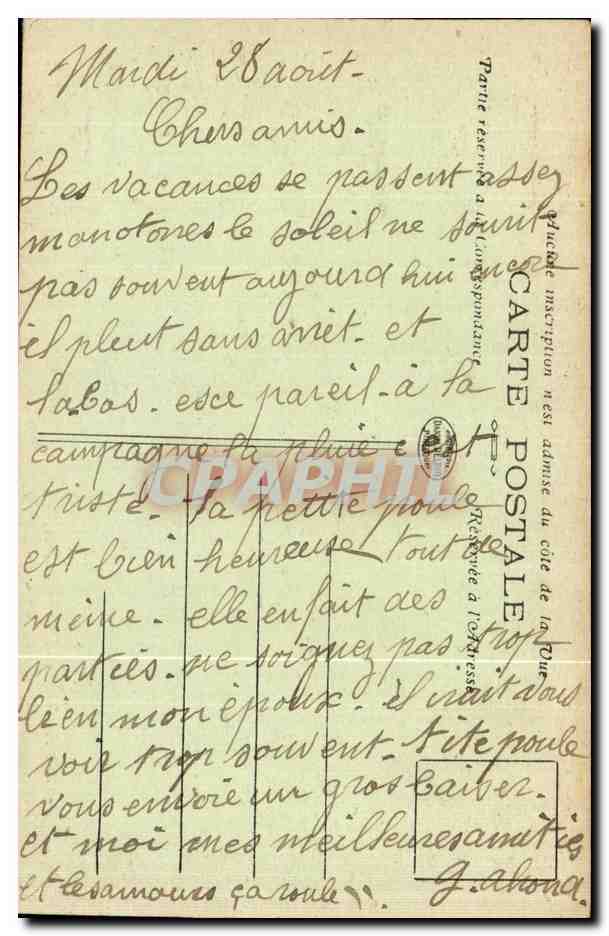 Mardi 28 août.
Chers amis.
Les vacances se passent assez
monotones le soleil ne sourit
pas souvent aujourd hui encore
il pleut sans arrêt. et
labas. esce pareil. à la
campagne la pluie c'est
triste. la petite poule
est bien heureuse tout de
même. elle en fait des
parties. ne soignez pas trop
bien mon époux. il irait vous
voir trop souvent. tite poule
vous envoie un gros baiser.
et moi mes meilleures amitiés
et les amours ça roule
Partie réservée à la Correspondance
CARTE POSTALE
Aucune inscription n'est admise du côté de la Vue
Réservée à l'Adresse
CPAPHIL